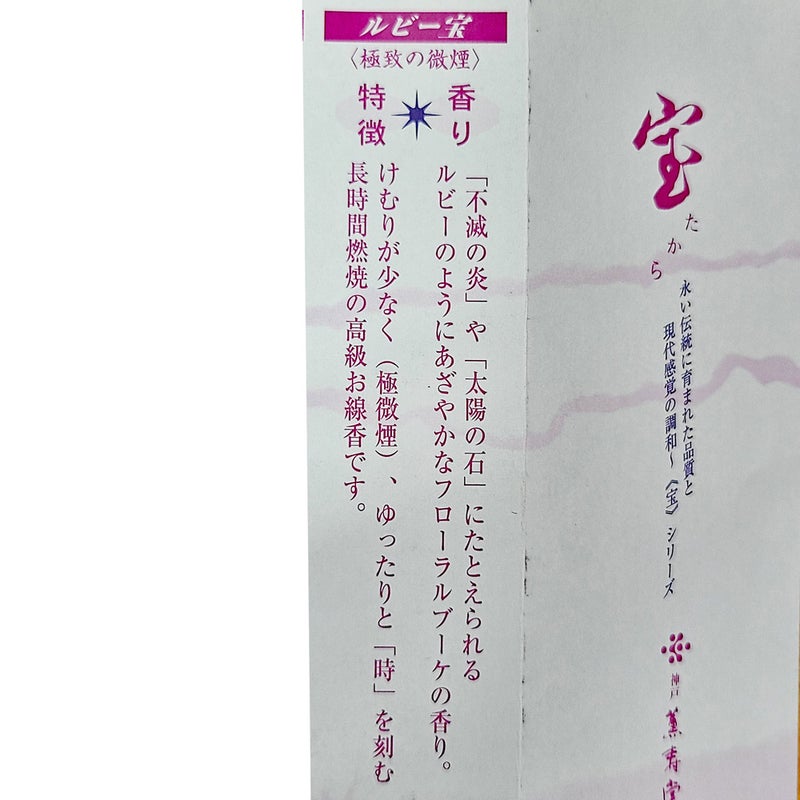 ルビー宝
〈極致の微煙〉
香り
特徴
「不滅の炎」や「太陽の石」にたとえられる
ルビーのようにあざやかなフローラルブーケの香り。
けむりが少なく（極微煙）、ゆったりと「時」を刻む
長時間燃焼の高級お線香です。
宝
たから
永い伝統に育まれた品質と
現代感覚の調和～《宝》シリーズ
神戸
薫寿堂